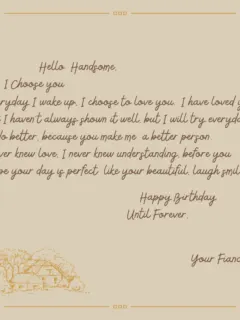 Hello Handsome,
I Choose you
everyday I wake up, I choose to love you. I have loved
I haven't always shown it well, but I will try everyday
do better, because you make me a better person.
never knew love, I never knew understanding, before you
your day is perfect like your beautiful, laugh smile
Happy Birthday
Until Forever,
Your